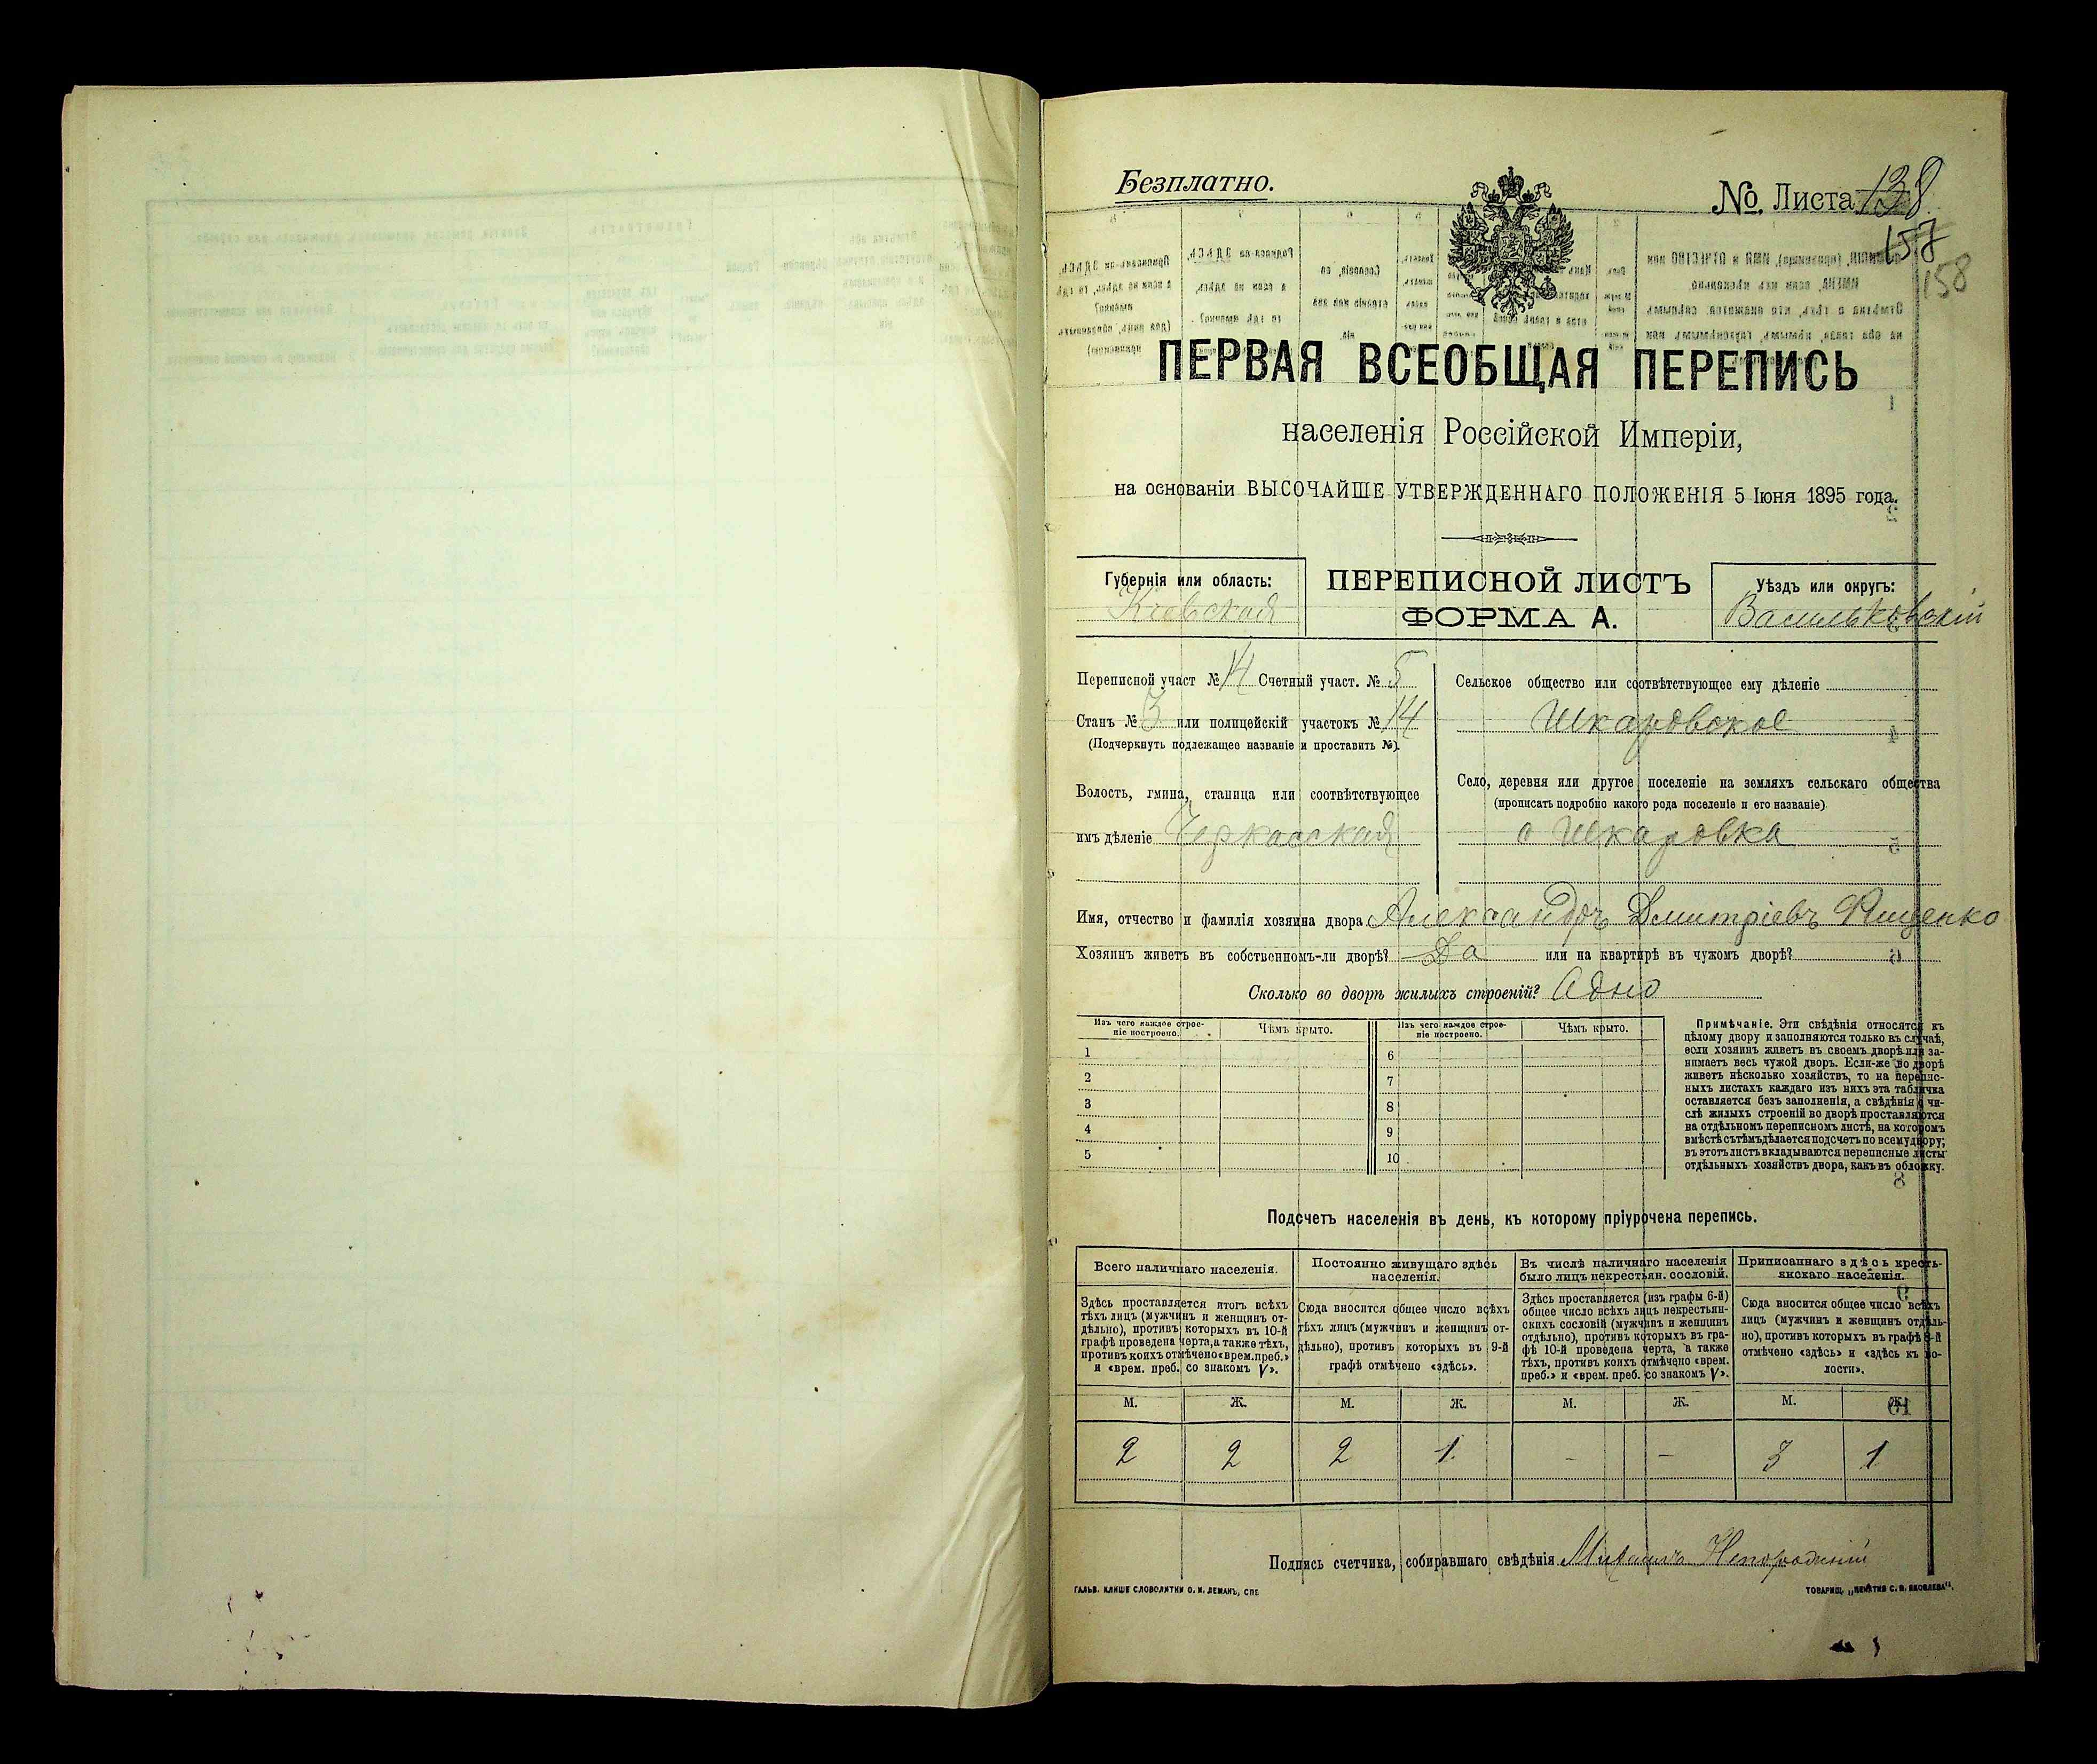 Безплатно.
№ Листа 138
157
158
ПЕРВАЯ ВСЕОБЩАЯ ПЕРЕПИСЬ
населенія Россійской Имперіи,
на основаніи ВЫСОЧАЙШЕ УТВЕРЖДЕННАГО ПОЛОЖЕНІЯ 5 Іюня 1895 года.
Губернія или область:
Кіевская
ПЕРЕПИСНОЙ ЛИСТЪ
ФОРМА А.
Уѣздъ или округъ:
Васильковскій
Переписной участ № 14 Счетный участ. № 5
Станъ № 3 или полицейскій участокъ № 14
(Подчеркнуть подлежащее названіе и проставить №).
Волость, гмина, станица или соотвѣтствующее
имъ дѣленіе Черкасская
Сельское общество или соотвѣтствующее ему дѣленіе
Шкаровское
Село, деревня или другое поселеніе на земляхъ сельскаго общества
(прописать подробно какого рода поселеніе и его названіе)
с Шкаровка
Имя, отчество и фамилія хозяина двора Александръ Дмитріевъ Ященко
Хозяинъ живетъ въ собственномъ-ли дворѣ? Да или на квартирѣ въ чужомъ дворѣ?
Сколько во дворѣ жилыхъ строеній? Одно
Изъ чего каждое строе-
ніе построено.
Чѣмъ крыто.
Изъ чего каждое строе-
ніе построено.
Чѣмъ крыто.
1
2
3
4
5
6
7
8
9
10
Примѣчаніе. Эти свѣдѣнія относятся къ
цѣлому двору и заполняются только въ случаѣ,
если хозяинъ живетъ въ своемъ дворѣ или за-
нимаетъ весь чужой дворъ. Если-же во дворѣ
живетъ нѣсколько хозяйствъ, то на перепис-
ныхъ листахъ каждаго изъ нихъ эта табличка
оставляется безъ заполненія, а свѣдѣнія о чи-
слѣ жилыхъ строеній во дворѣ проставляются
на отдѣльномъ переписномъ листѣ, на которомъ
вмѣстѣ съ тѣмъ дѣлается подсчетъ по всему двору;
въ этотъ листъ вкладываются переписные листы
отдѣльныхъ хозяйствъ двора, какъ въ обложку.
Подсчетъ населенія въ день, къ которому пріурочена перепись.
Всего наличнаго населенія.
Здѣсь проставляется итогъ всѣхъ
тѣхъ лицъ (мужчинъ и женщинъ от-
дѣльно), противъ которыхъ въ 10-й
графѣ проведена черта, а также тѣхъ,
противъ коихъ отмѣчено «врем. преб.»
и «врем. преб. со знакомъ V».
Постоянно живущаго здѣсь
населенія.
Сюда вносится общее число всѣхъ
тѣхъ лицъ (мужчинъ и женщинъ от-
дѣльно), противъ которыхъ въ 9-й
графѣ отмѣчено «здѣсь».
Въ числѣ наличнаго населенія
было лицъ некрестьян. сословій.
Здѣсь проставляется (изъ графы 6-й)
общее число всѣхъ лицъ некрестьян-
скихъ сословій (мужчинъ и женщинъ
отдѣльно), противъ которыхъ въ гра-
фѣ 10-й проведена черта, а также
тѣхъ, противъ коихъ отмѣчено «врем.
преб.» и «врем. преб. со знакомъ V».
Приписаннаго здѣсь кресть-
янскаго населенія.
Сюда вносится общее число всѣхъ
лицъ (мужчинъ и женщинъ отдѣль-
но), противъ которыхъ въ графѣ 8-й
отмѣчено «здѣсь» и «здѣсь къ во-
лости».
М. Ж. М. Ж. М. Ж. М. Ж.
2 2 2 1. - - 3 1
Подпись счетчика, собиравшаго свѣдѣнія Михаилъ
ГАЛЬВ. КЛИШЕ СЛОВОЛИТНИ О. И. ЛЕМАНЪ, СПБ
ТОВАРИЩ. „ПЕЧАТНЯ С. П. ЯКОВЛЕВА".